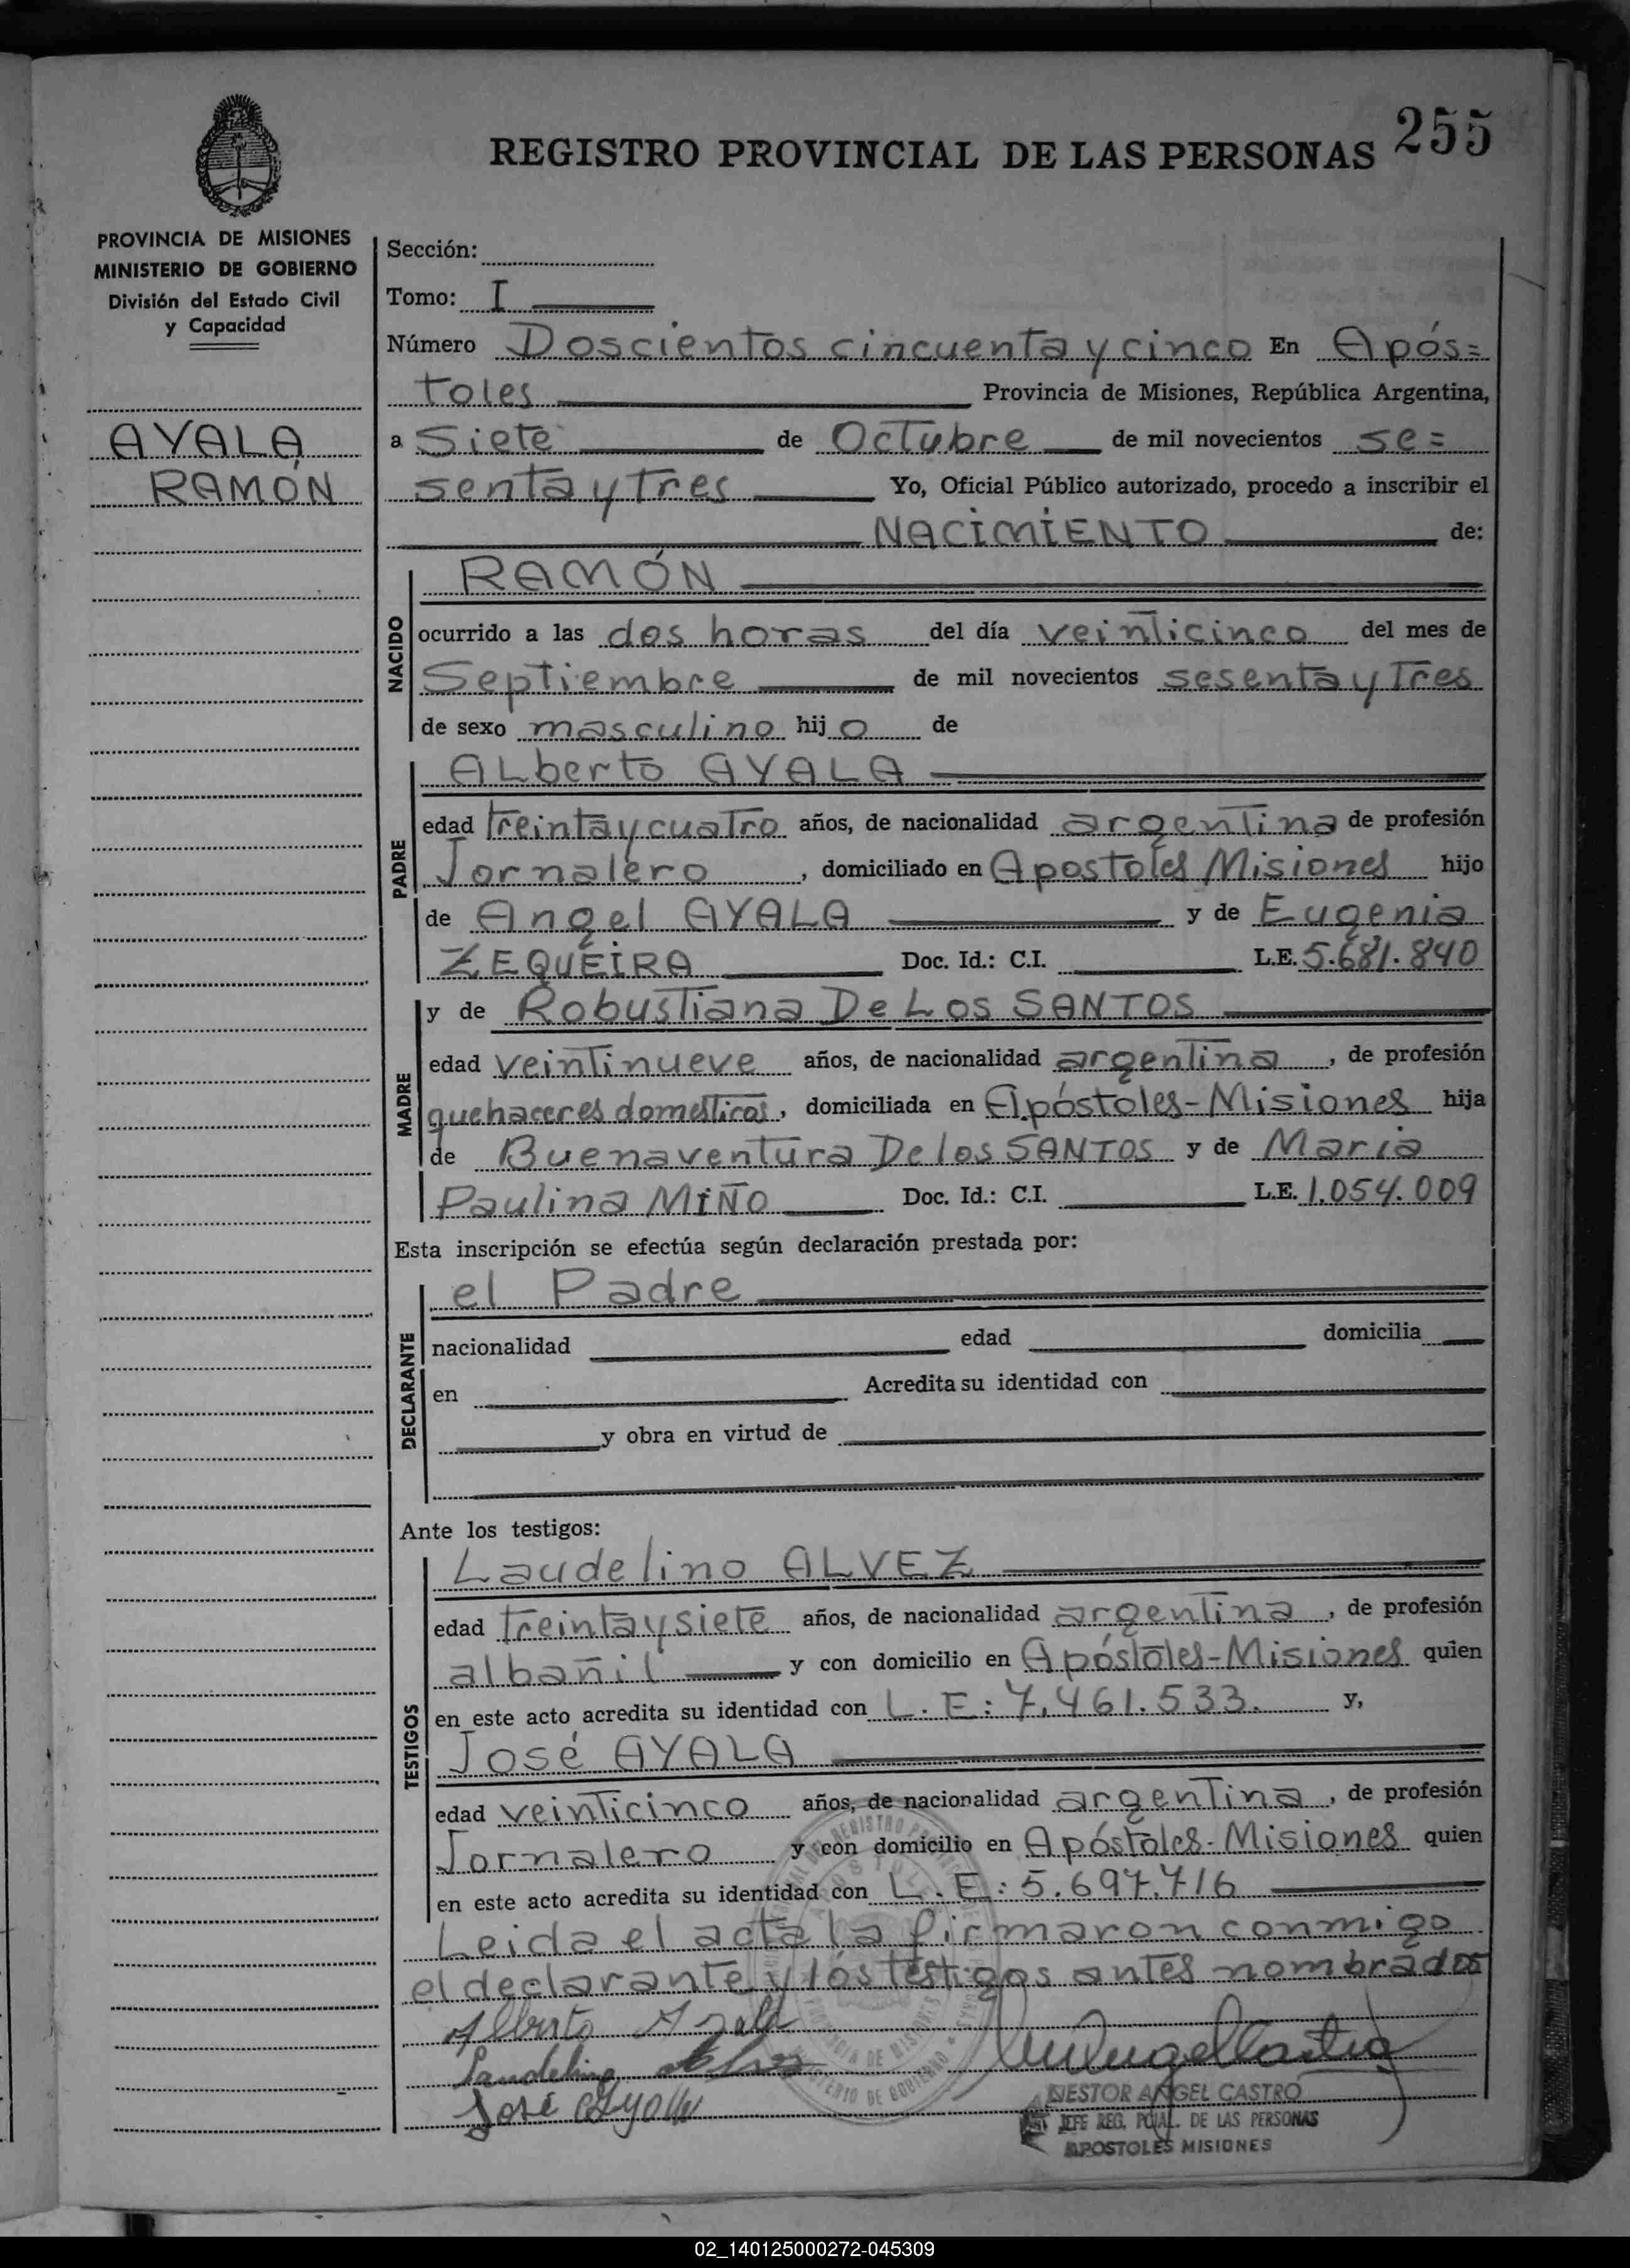 255
REGISTRO PROVINCIAL DE LAS PERSONAS
PROVINCIA DE MISIONES
MINISTERIO DE GOBIERNO
División del Estado Civil
y Capacidad
AYALA
RAMÓN
Sección:
Tomo: I
Número Doscientos cincuenta y cinco En Após=
toles Provincia de Misiones, República Argentina,
a Siete de Octubre de mil novecientos se=
senta y Tres Yo, Oficial Público autorizado, procedo a inscribir el
NACIMIENTO de:
NACIDO
RAMÓN
ocurrido a las dos horas del día veinticinco del mes de
Septiembre de mil novecientos sesenta y Tres
de sexo masculino hijo de
PADRE
ALberto AYALA
edad treinta y cuatro años, de nacionalidad argentina de profesión
Jornalero, domiciliado en Apostoles Misiones hijo
de Angel AYALA y de Eugenia
ZEQUEIRA Doc. Id.: C.I. L.E. 5.681.840
MADRE
y de Robustiana De Los SANTOS
edad veintinueve años, de nacionalidad argentina, de profesión
quehaceres domesticos, domiciliada en Apóstoles-Misiones hija
de Buenaventura De los SANTOS y de Maria
Paulina MIÑO Doc. Id.: C.I. L.E. 1.054.009
Esta inscripción se efectúa según declaración prestada por:
DECLARANTE
el Padre
nacionalidad edad domicilia
en Acredita su identidad con
y obra en virtud de
Ante los testigos:
TESTIGOS
Laudelino ALVEZ
edad treinta y siete años, de nacionalidad argentina, de profesión
albañil y con domicilio en Apóstoles-Misiones quien
en este acto acredita su identidad con L.E: 7.461.533. y,
José AYALA
edad veinticinco años, de nacionalidad argentina, de profesión
Jornalero y con domicilio en Apóstoles-Misiones quien
en este acto acredita su identidad con L.E: 5.697.716
Leida el acta la firmaron conmigo
el declarante y los testigos antes nombrados
Alberto Ayala
Laudelino
José Ayala
NESTOR ANGEL CASTRO
JEFE REG. PCIAL. DE LAS PERSONAS
APOSTOLES MISIONES
02_140125000272-045309